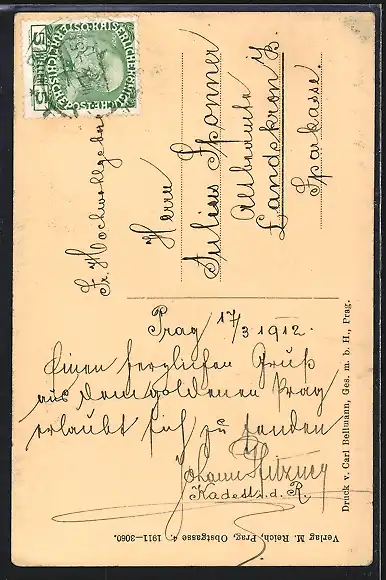 Sr. Hochwohlgeboren
Herrn
Julius Sponner
Altbeamte
Landskron i/B.
Sparkasse.
Prag 17/3 1912.
Einen herzlichen Gruß
aus dem goldenen Prag
erlaubt sich zu senden
Johann
Kadett i. d. R.
Druck v. Carl Bellmann, Ges. m. b. H., Prag.
Verlag M. Reich, Prag, Obstgasse 4. 1911—3060.
5 5